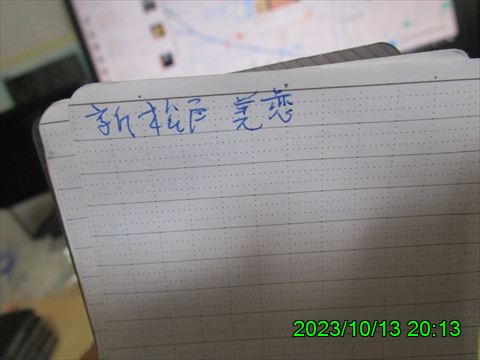 新松戸 美恋
2023/10/13 20:13